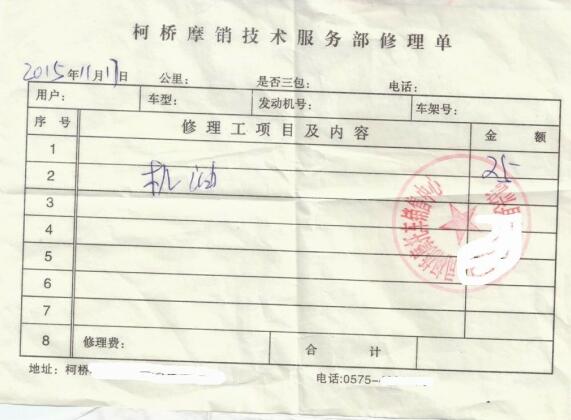 柯桥摩销技术服务部修理单
2015年11月17日 公里： 是否三包： 电话：
用户： 车型： 发动机号： 车架号：
序号 修理工项目及内容 金额
1
2 机油 25
3
4
5
6
7
8 修理费： 合计
地址：柯桥 电话：0575-